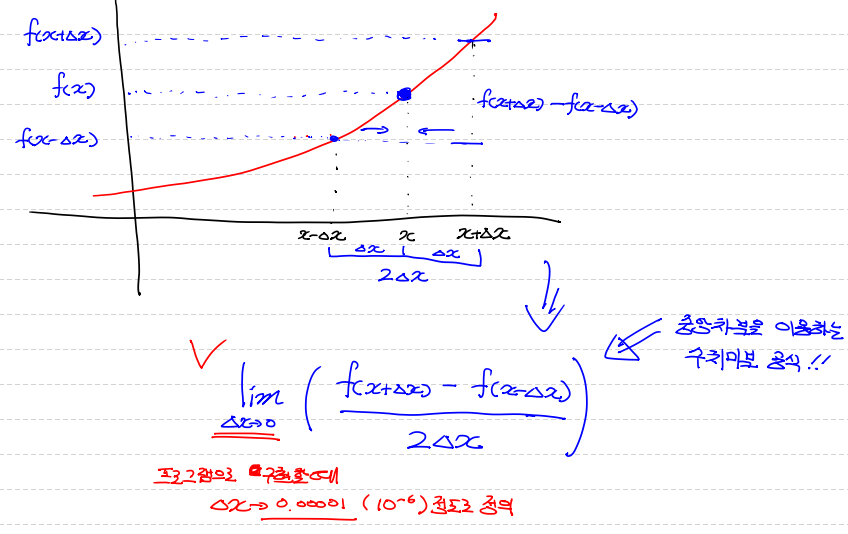 f(x+Δx)
f(x)
f(x-Δx)
f(x+Δx) - f(x-Δx)
x-Δx x x+Δx
Δx Δx
2Δx
중앙차분을 이용하는
수치미분 공식!!
lim ( f(x+Δx) - f(x-Δx)
Δx→0
2Δx )
프로그램으로 구현할 때
Δx→ 0.00001 (10⁻⁶) 정도로 정의